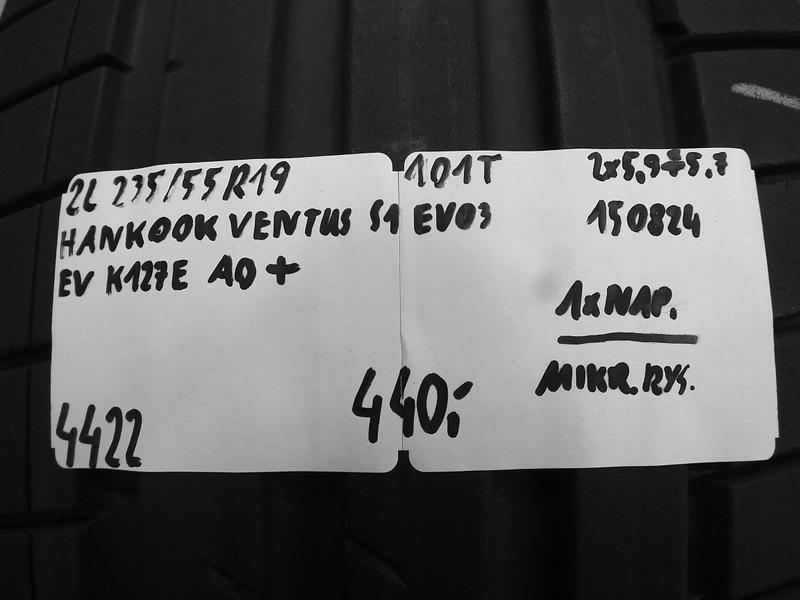 2L 235/55R19 101T 2x5,9÷5,7
HANKOOK VENTUS S1 EVO3 150824
EV K127E AO +
1xNAP.
MIKR. RYS.
4422 440,-